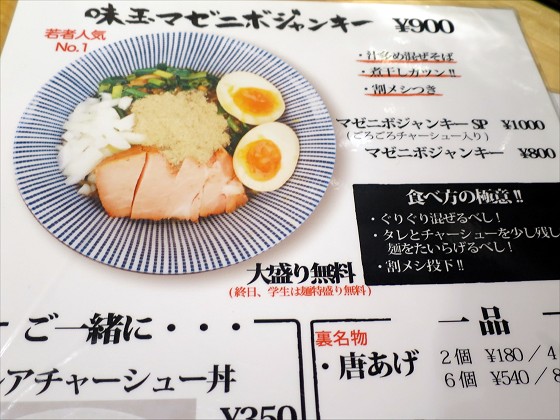 味玉マゼニボジャンキー ¥900
若者人気
No.1
・汁なめ混ぜそば
・煮干しガツン!!
・割メシつき
マゼニボジャンキー SP ¥1000
(ごろごろチャーシュー入り)
マゼニボジャンキー ¥800
食べ方の極意!!
・ぐりぐり混ぜるべし!
・タレとチャーシューを少し残し
麺をたいらげるべし!
・割メシ投下!!
大盛り無料
(終日、学生は麺特盛り無料)
ご一緒に・・・
レアチャーシュー丼
¥350
一品
裏名物
・唐あげ
2個 ¥180/4
6個 ¥540/8